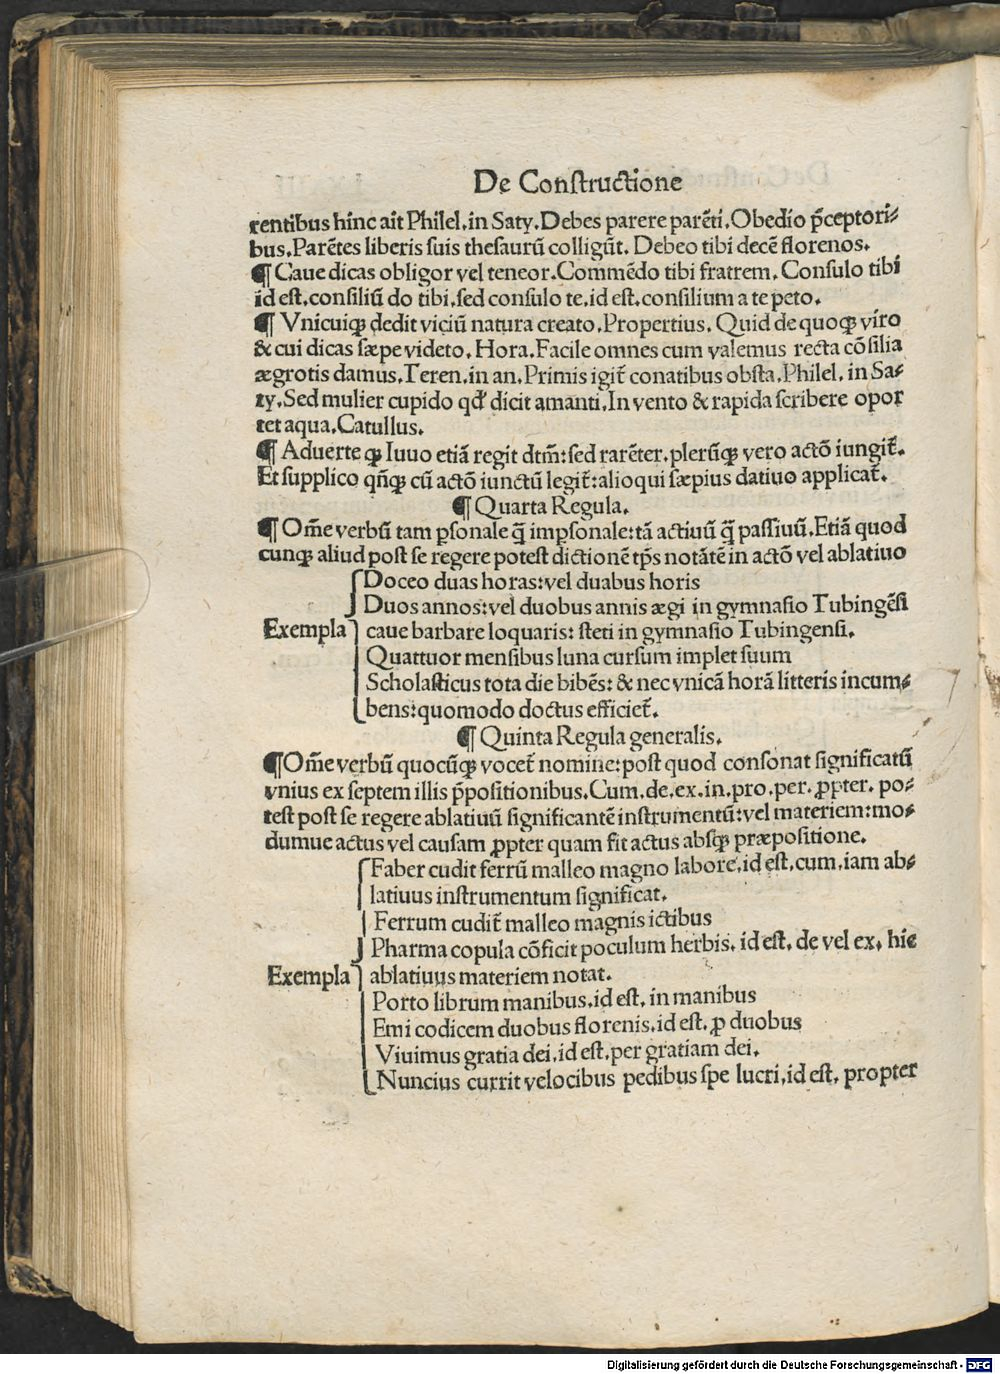 De Constructione
rentibus hinc ait Philel. in Saty. Debes parere parēti. Obedio p̄ceptori⸗
bus. Parētes liberis suis thesaurū colligūt. Debeo tibi decē florenos.
¶ Caue dicas obligor vel teneor. Commēdo tibi fratrem. Consulo tibi
id est. consiliū do tibi. sed consulo te. id est. consilium a te peto.
¶ Vnicuiqꝫ dedit viciū natura creato. Propertius. Quid de quoqꝫ viro
& cui dicas sæpe videto. Hora. Facile omnes cum valemus recta cōsilia
ægrotis damus. Teren. in an. Primis igit᷑ conatibus obsta. Philel. in Sa⸗
ty. Sed mulier cupido qd̛ dicit amanti. In vento & rapida scribere opor
tet aqua. Catullus.
¶ Aduerte qꝫ Iuuo etiā regit dtm̄: sed rarēter. plerūqꝫ vero actō iungit᷑.
Et supplico qn̄qꝫ cū actō iunctū legit᷑: alioqui sæpius datiuo applicat᷑.
¶ Quarta Regula.
¶ Om̄e verbū tam ꝑsonale q̄ imꝑsonale: tā actiuū q̄ passiuū. Etiā quod
cunqꝫ aliud post se regere potest dictionē tp̄s notātē in actō vel ablatiuo
Doceo duas horas: vel duabus horis
Duos annos: vel duobus annis ægi in gymnasio Tubingēsi
Exempla caue barbare loquaris: steti in gymnasio Tubingensi.
Quattuor mensibus luna cursum implet suum
Scholasticus tota die bibēs: & nec vnicā horā litteris incum⸗
bens: quomodo doctus efficiet᷑.
¶ Quinta Regula generalis.
¶ Om̄e verbū quocūqꝫ vocet᷑ nomine: post quod consonat significatū
vnius ex septem illis p̄positionibus. Cum. de. ex. in. pro. per. ꝓpter. po⸗
test post se regere ablatiuū significantē instrumentū: vel materiem: mo⸗
dumue actus vel causam ꝓpter quam fit actus absqꝫ præpositione.
Faber cudit ferrū malleo magno labore. id est. cum. iam ab⸗
latiuus instrumentum significat.
Ferrum cudit᷑ malleo magnis ictibus
Pharmacopula cōficit poculum herbis. id est. de vel ex. hic
Exempla ablatiuus materiem notat.
Porto librum manibus. id est. in manibus
Emi codicem duobus florenis. id est. ꝓ duobus
Viuimus gratia dei. id est. per gratiam dei.
Nuncius currit velocibus pedibus spe lucri. id est. propter
Digitalisierung gefördert durch die Deutsche Forschungsgemeinschaft - DFG